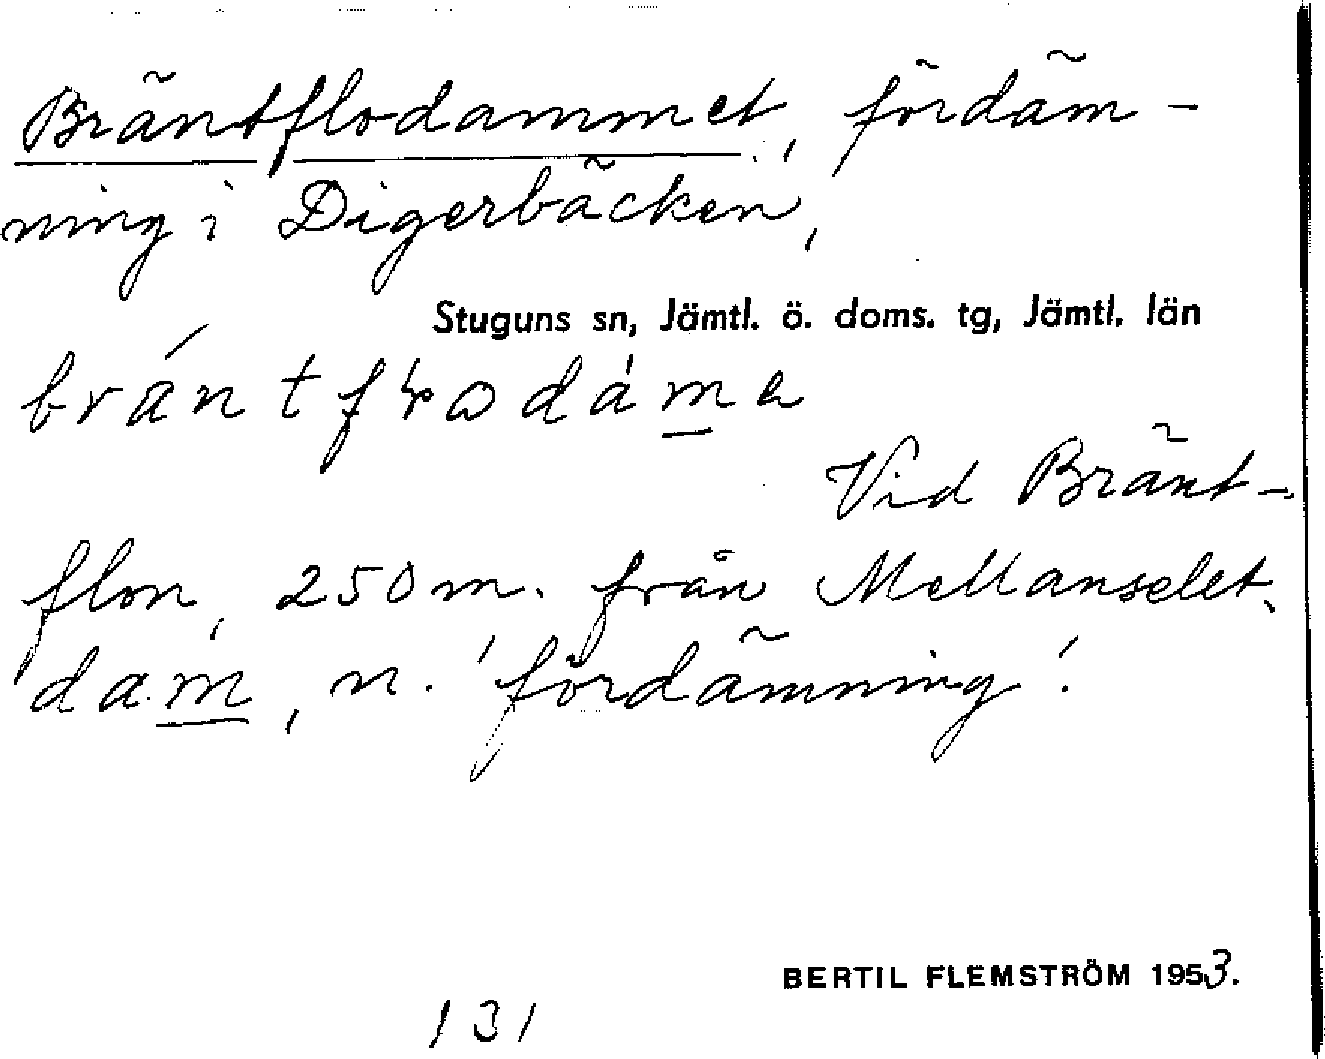 Bräntflodammet, fördäm-
ning i Digerbäcken,
Stuguns sn, Jämtl. ö. doms. tg, Jämtl. län
Vid Bränt-
flon, 250 m. från Mellanselet.
dam, n. 'fördämning'.
BERTIL FLEMSTRÖM 1953.
131